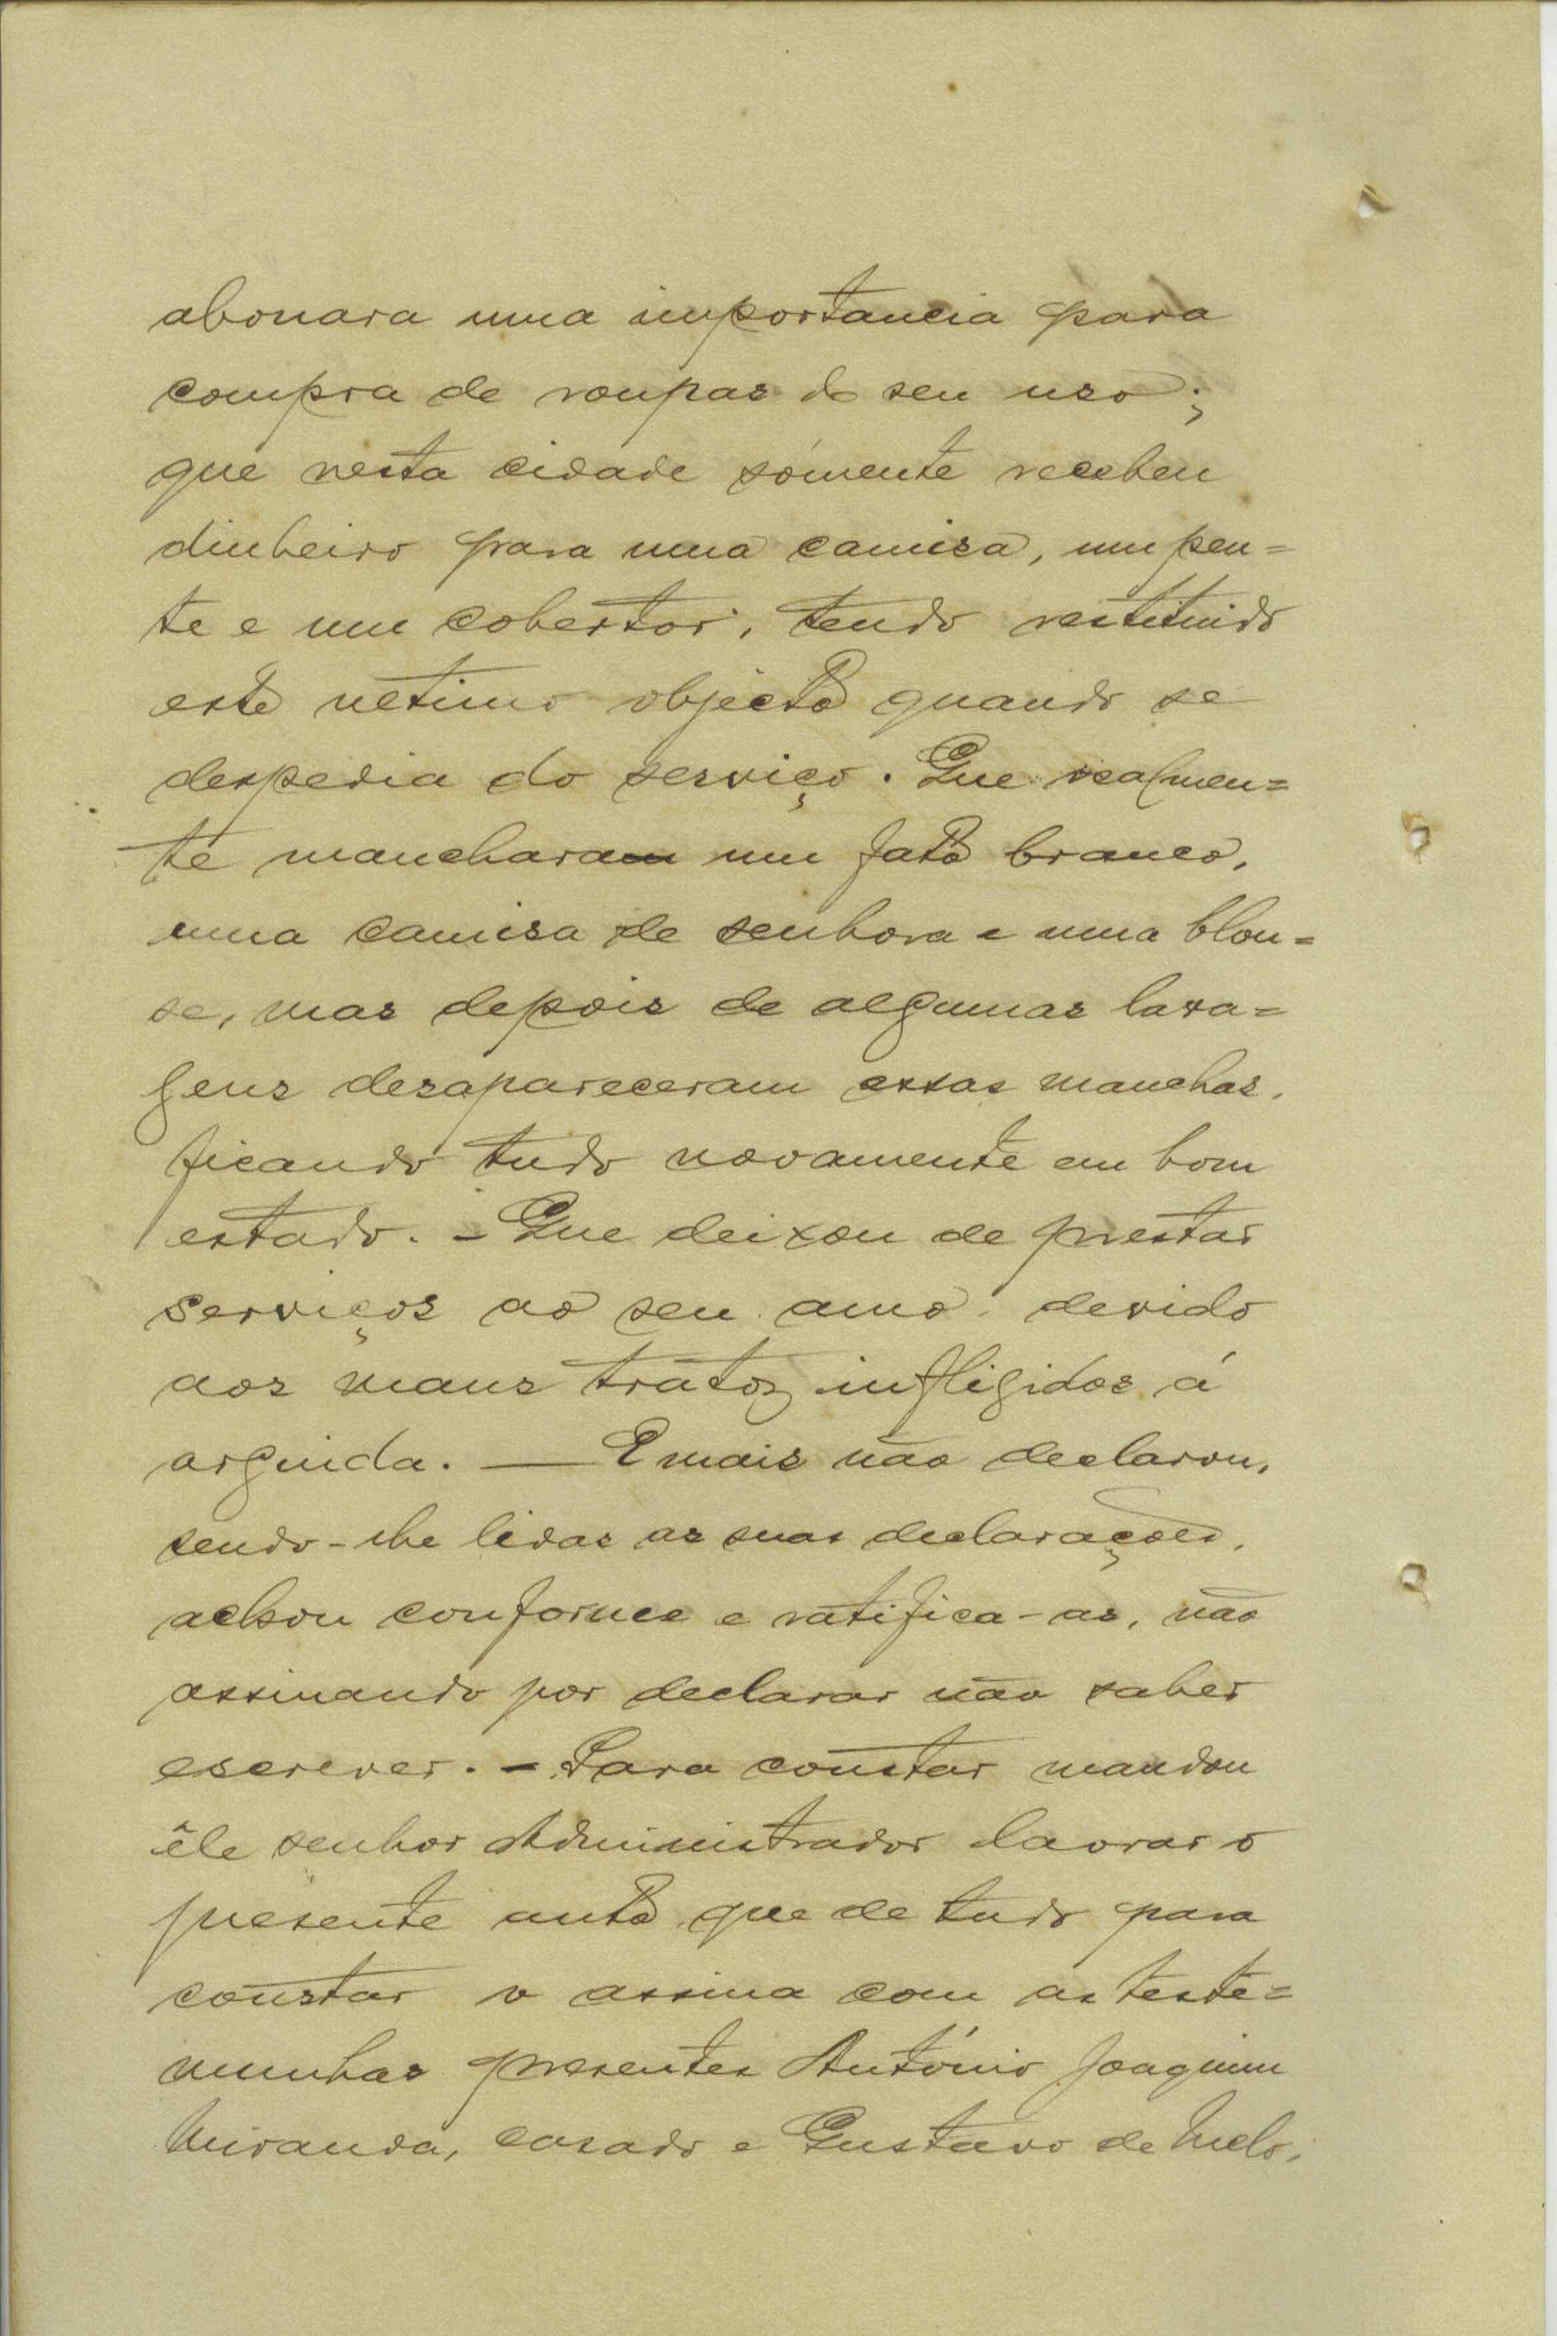 abonara uma importancia para
compra de roupas do seu uso;
que nesta cidade sómente recebeu
dinheiro para uma camisa, um pen=
te e um cobertor, tendo restituido
este ultimo objecto quando se
despedia do serviço. Que realmen=
te mancharam um fato branco,
uma camisa de senhora e uma blou=
se, mas depois de algumas lava=
gens desapareceram essas manchas,
ficando tudo novamente em bom
estado. - Que deixou de prestar
serviços ao seu amo devido
aos maus tratos infligidos á
arguida. — E mais não declarou,
sendo-lhe lidas as suas declarações,
achou conforme e ratifica-as, não
assinando por declarar não saber
escrever. - Para constar mandou
êle senhor Administrador lavrar o
presente auto que de tudo para
constar o assina com as teste=
munhas presentes António Joaquim
Miranda, casado e Gustavo de Melo,